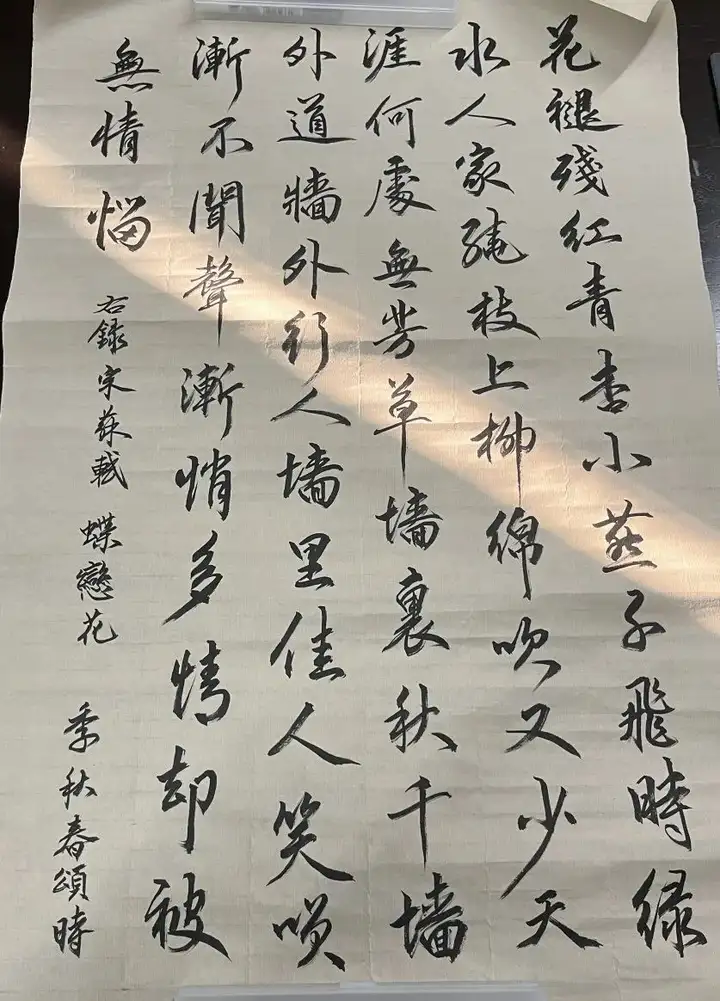 花褪殘紅青杏小燕子飛時緑
水人家繞枝上柳綿吹又少天
涯何處無芳草墻裏秋千墻
外道牆外行人墻里佳人笑
漸不聞聲漸悄多情却被
無情惱
右録宋蘇軾 蝶戀花 季秋春頌時